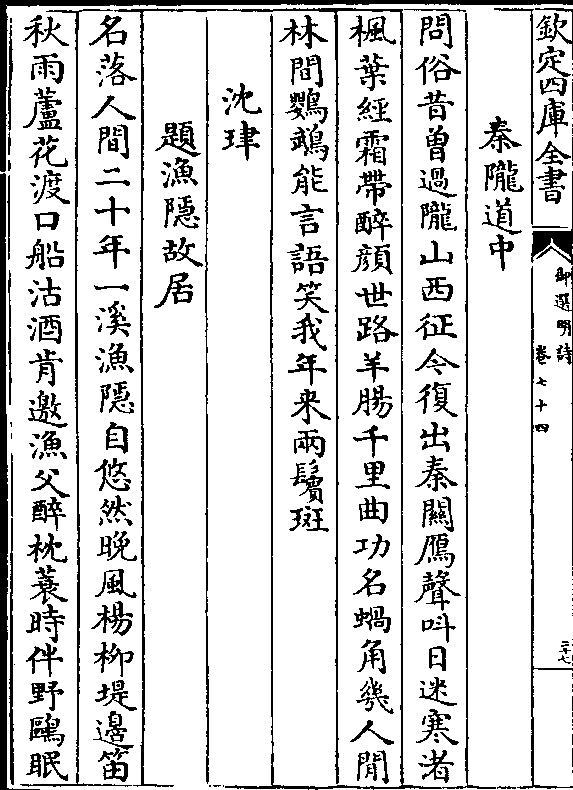 欽定四庫全書
御選明詩
卷七十四
二十七
秦隴道中
問俗昔曾過隴山西征今復出秦關鴈聲呌日迷寒渚
楓葉經霜帶醉顔世路羊腸千里曲功名蝸角幾人閒
林間鸚鵡能言語笑我年来兩鬢斑
沈珒
題漁隱故居
名落人間二十年一溪漁隱自悠然晚風楊柳堤邊笛
秋雨蘆花渡口船沽酒肯邀漁父醉枕蓑時伴野鷗眠